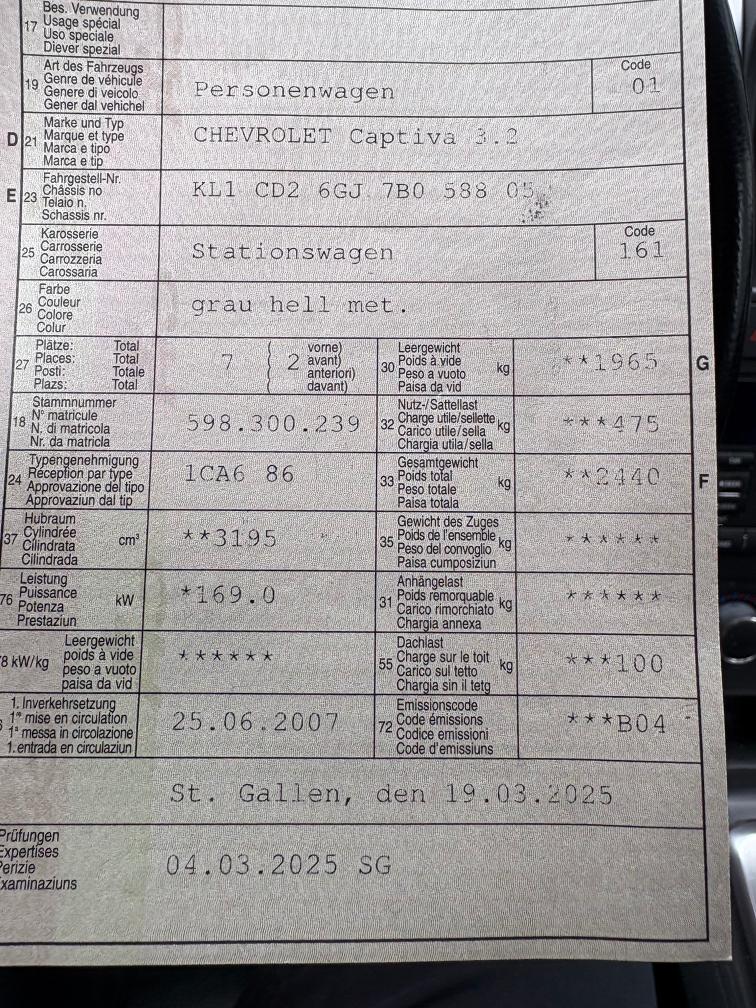 17 Bes. Verwendung
Usage spécial
Uso speciale
Diever spezial
19 Art des Fahrzeugs
Genre de véhicule
Genere di veicolo
Gener dal vehichel
Personenwagen
Code
01
D 21 Marke und Typ
Marque et type
Marca e tipo
Marca e tip
CHEVROLET Captiva 3.2
E 23 Fahrgestell-Nr.
Châssis no
Telaio n.
Schassis nr.
KL1 CD2 6GJ 7B0 588 05
25 Karosserie
Carrosserie
Carrozzeria
Carossaria
Stationswagen
Code
161
26 Farbe
Couleur
Colore
Colur
grau hell met.
27 Plätze: Total
Places: Total
Posti: Totale
Plazs: Total
7 ( 2 vorne)
( avant)
( anteriori)
( davant)
30 Leergewicht
Poids à vide
Peso a vuoto
Paisa da vid
kg
**1965
G
18 Stammnummer
N° matricule
N. di matricola
Nr. da matricla
598.300.239
32 Nutz-/Sattellast
Charge utile/sellette
Carico utile/sella
Chargia utila/sella
kg
***475
24 Typengenehmigung
Réception par type
Approvazione del tipo
Approvaziun dal tip
1CA6 86
33 Gesamtgewicht
Poids total
Peso totale
Paisa totala
kg
**2440
F
37 Hubraum
Cylindrée
Cilindrata
Cilindrada
cm³
**3195
35 Gewicht des Zuges
Poids de l'ensemble
Peso del convoglio
Paisa cumposiziun
kg
******
76 Leistung
Puissance
Potenza
Prestaziun
kW
*169.0
31 Anhängelast
Poids remorquable
Carico rimorchiato
Chargia annexa
kg
******
78 kW/kg
Leergewicht
poids à vide
peso a vuoto
paisa da vid
******
55 Dachlast
Charge sur le toit
Carico sul tetto
Chargia sin il tetg
kg
***100
1. Inverkehrsetzung
1re mise en circulation
1a messa in circolazione
1. entrada en circulaziun
25.06.2007
72 Emissionscode
Code émissions
Codice emissioni
Code d'emissiuns
***B04
St. Gallen, den 19.03.2025
Prüfungen
Expertises
Perizie
Examinaziuns
04.03.2025 SG